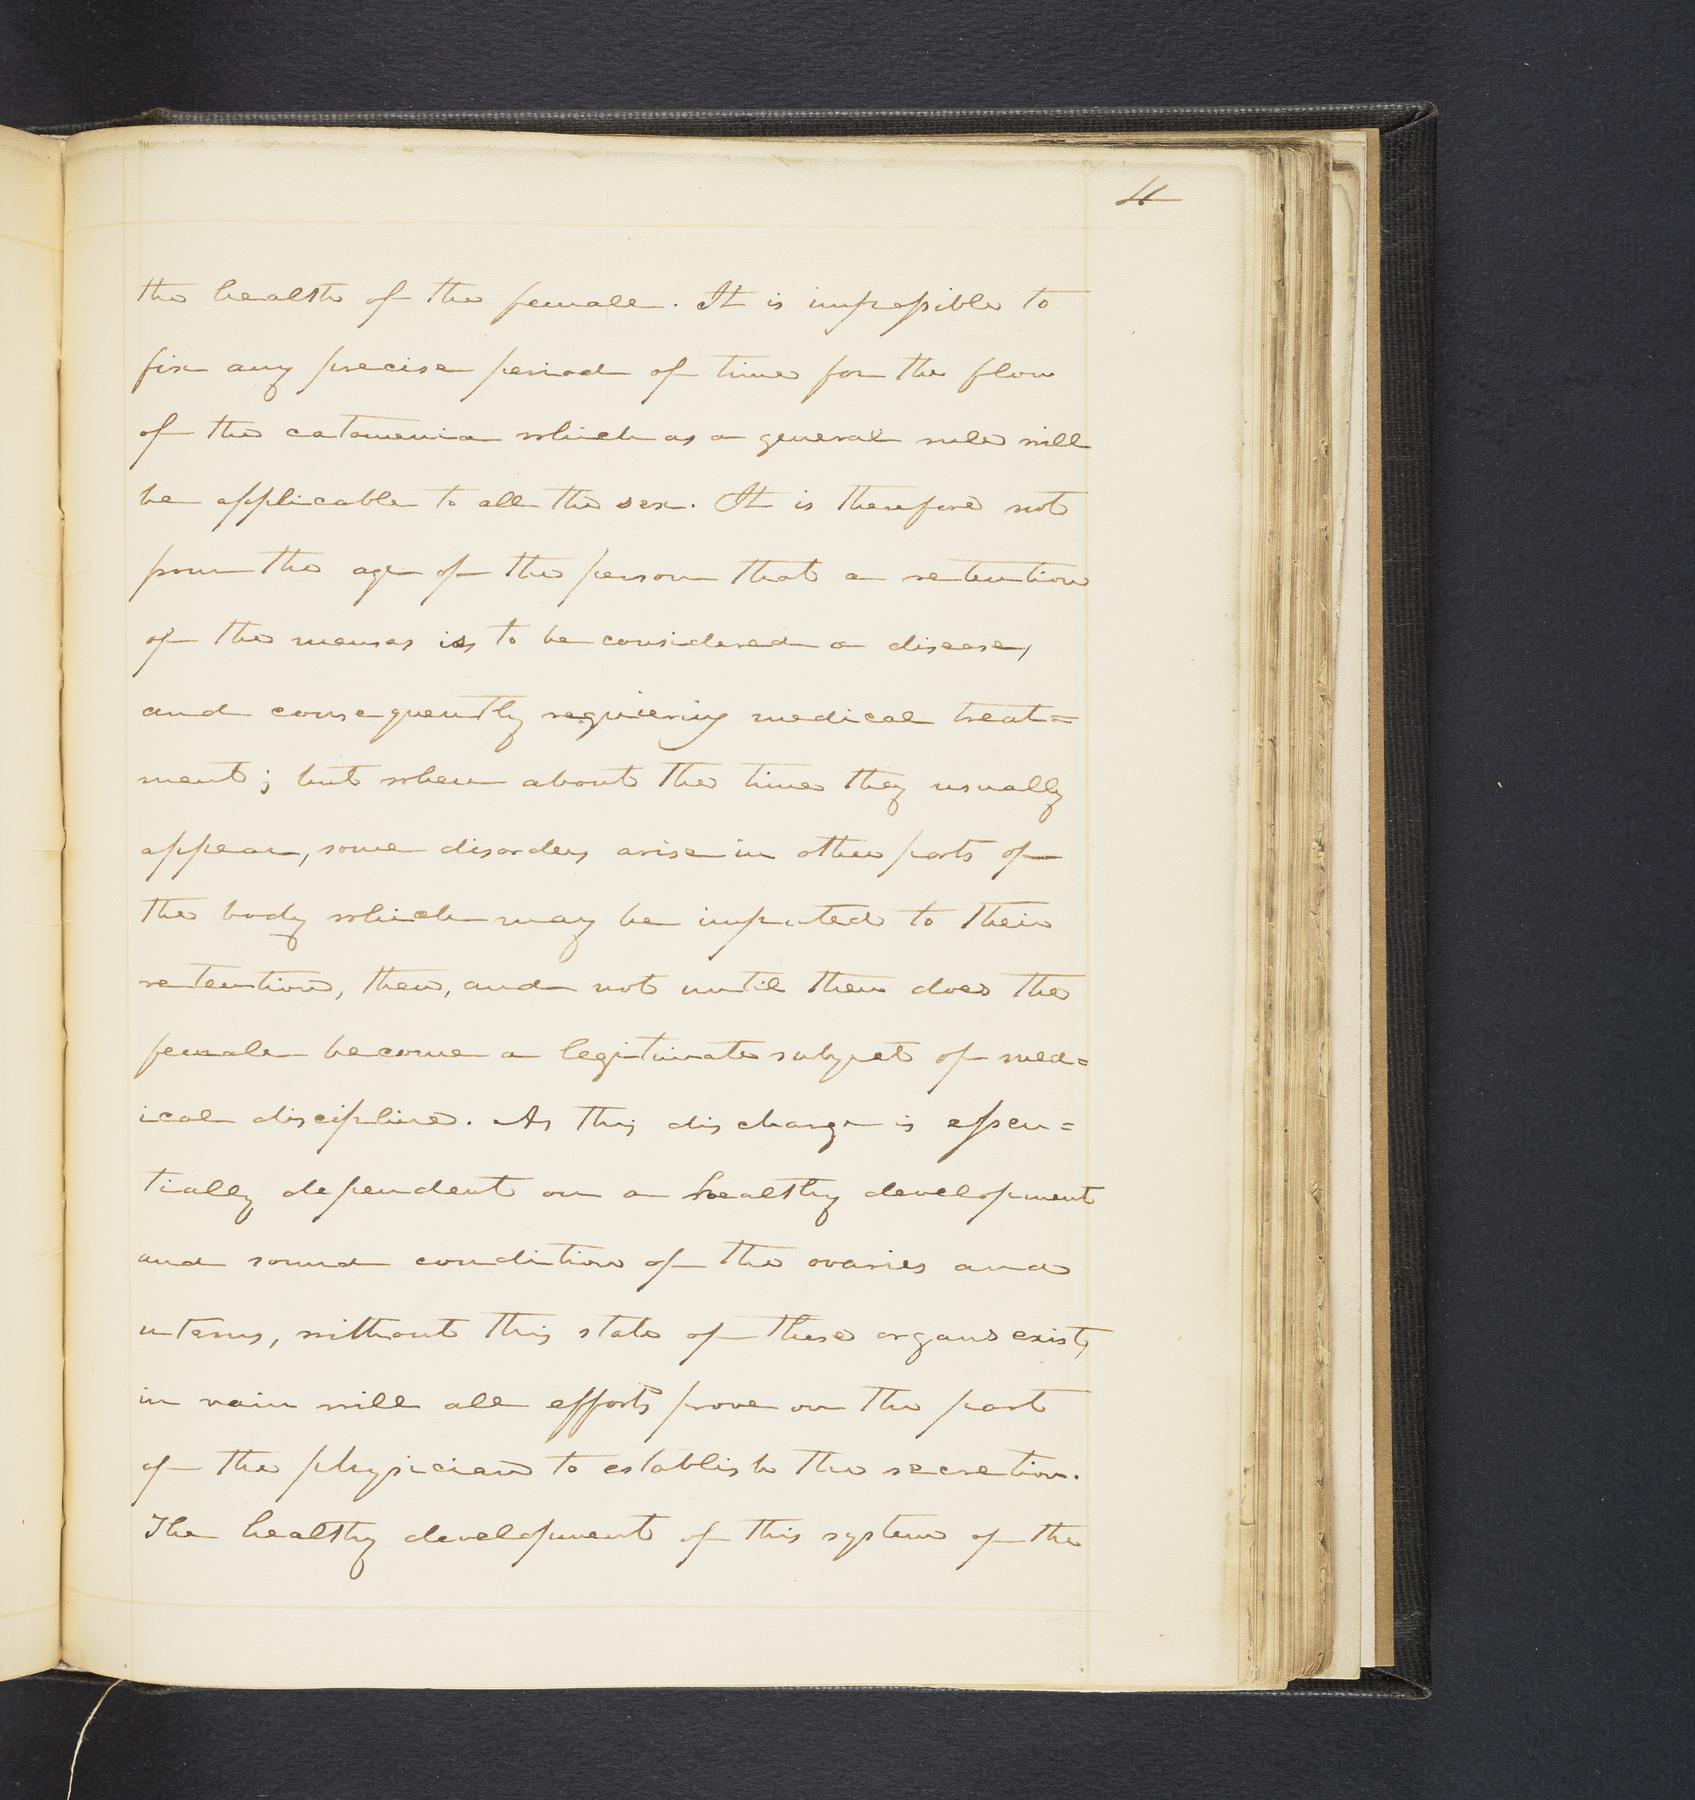 4
the health of the female. It is impossible to
fix any precise period of time for the flow
of the catamenia which as a general rule will
be applicable to all the sex. It is therefore not
from the age of the person that a retention
of the menses is to be considered a disease,
and consequently requiering medical treat=
ment; but when about the time they usually
appear, some disorders arise in other parts of
the body which may be imputed to their
retention, then, and not until then does the
female become a legitimate subject of med=
ical discipline. As this discharge is essen=
tially dependent on a healthy development
and sound condition of the ovaries and
uterus, without this state of these organs exist,
in vain will all efforts prove on the part
of the physician to establish the secretion.
The healthy development of this system of the